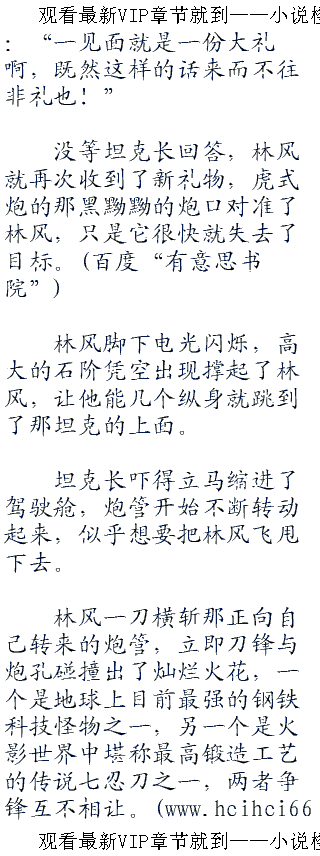 观看最新VIP章节就到——小说检
：“一见面就是一份大礼
啊，既然这样的话来而不往
非礼也！”
没等坦克长回答，林风
就再次收到了新礼物，虎式
炮的那黑黝黝的炮口对准了
林风，只是它很快就失去了
目标。(百度“有意思书
院”)
林风脚下电光闪烁，高
大的石阶凭空出现撑起了林
风，让他能几个纵身就跳到
了那坦克的上面。
坦克长吓得立马缩进了
驾驶舱，炮管开始不断转动
起来，似乎想要把林风飞甩
下去。
林风一刀横斩那正向自
己转来的炮管，立即刀锋与
炮孔碰撞出了灿烂火花，一
个是地球上目前最强的钢铁
科技怪物之一，另一个是火
影世界中堪称最高锻造工艺
的传说七忍刀之一，两者争
锋互不相让。(www.hcihci66
观看最新VIP章节就到——小说检